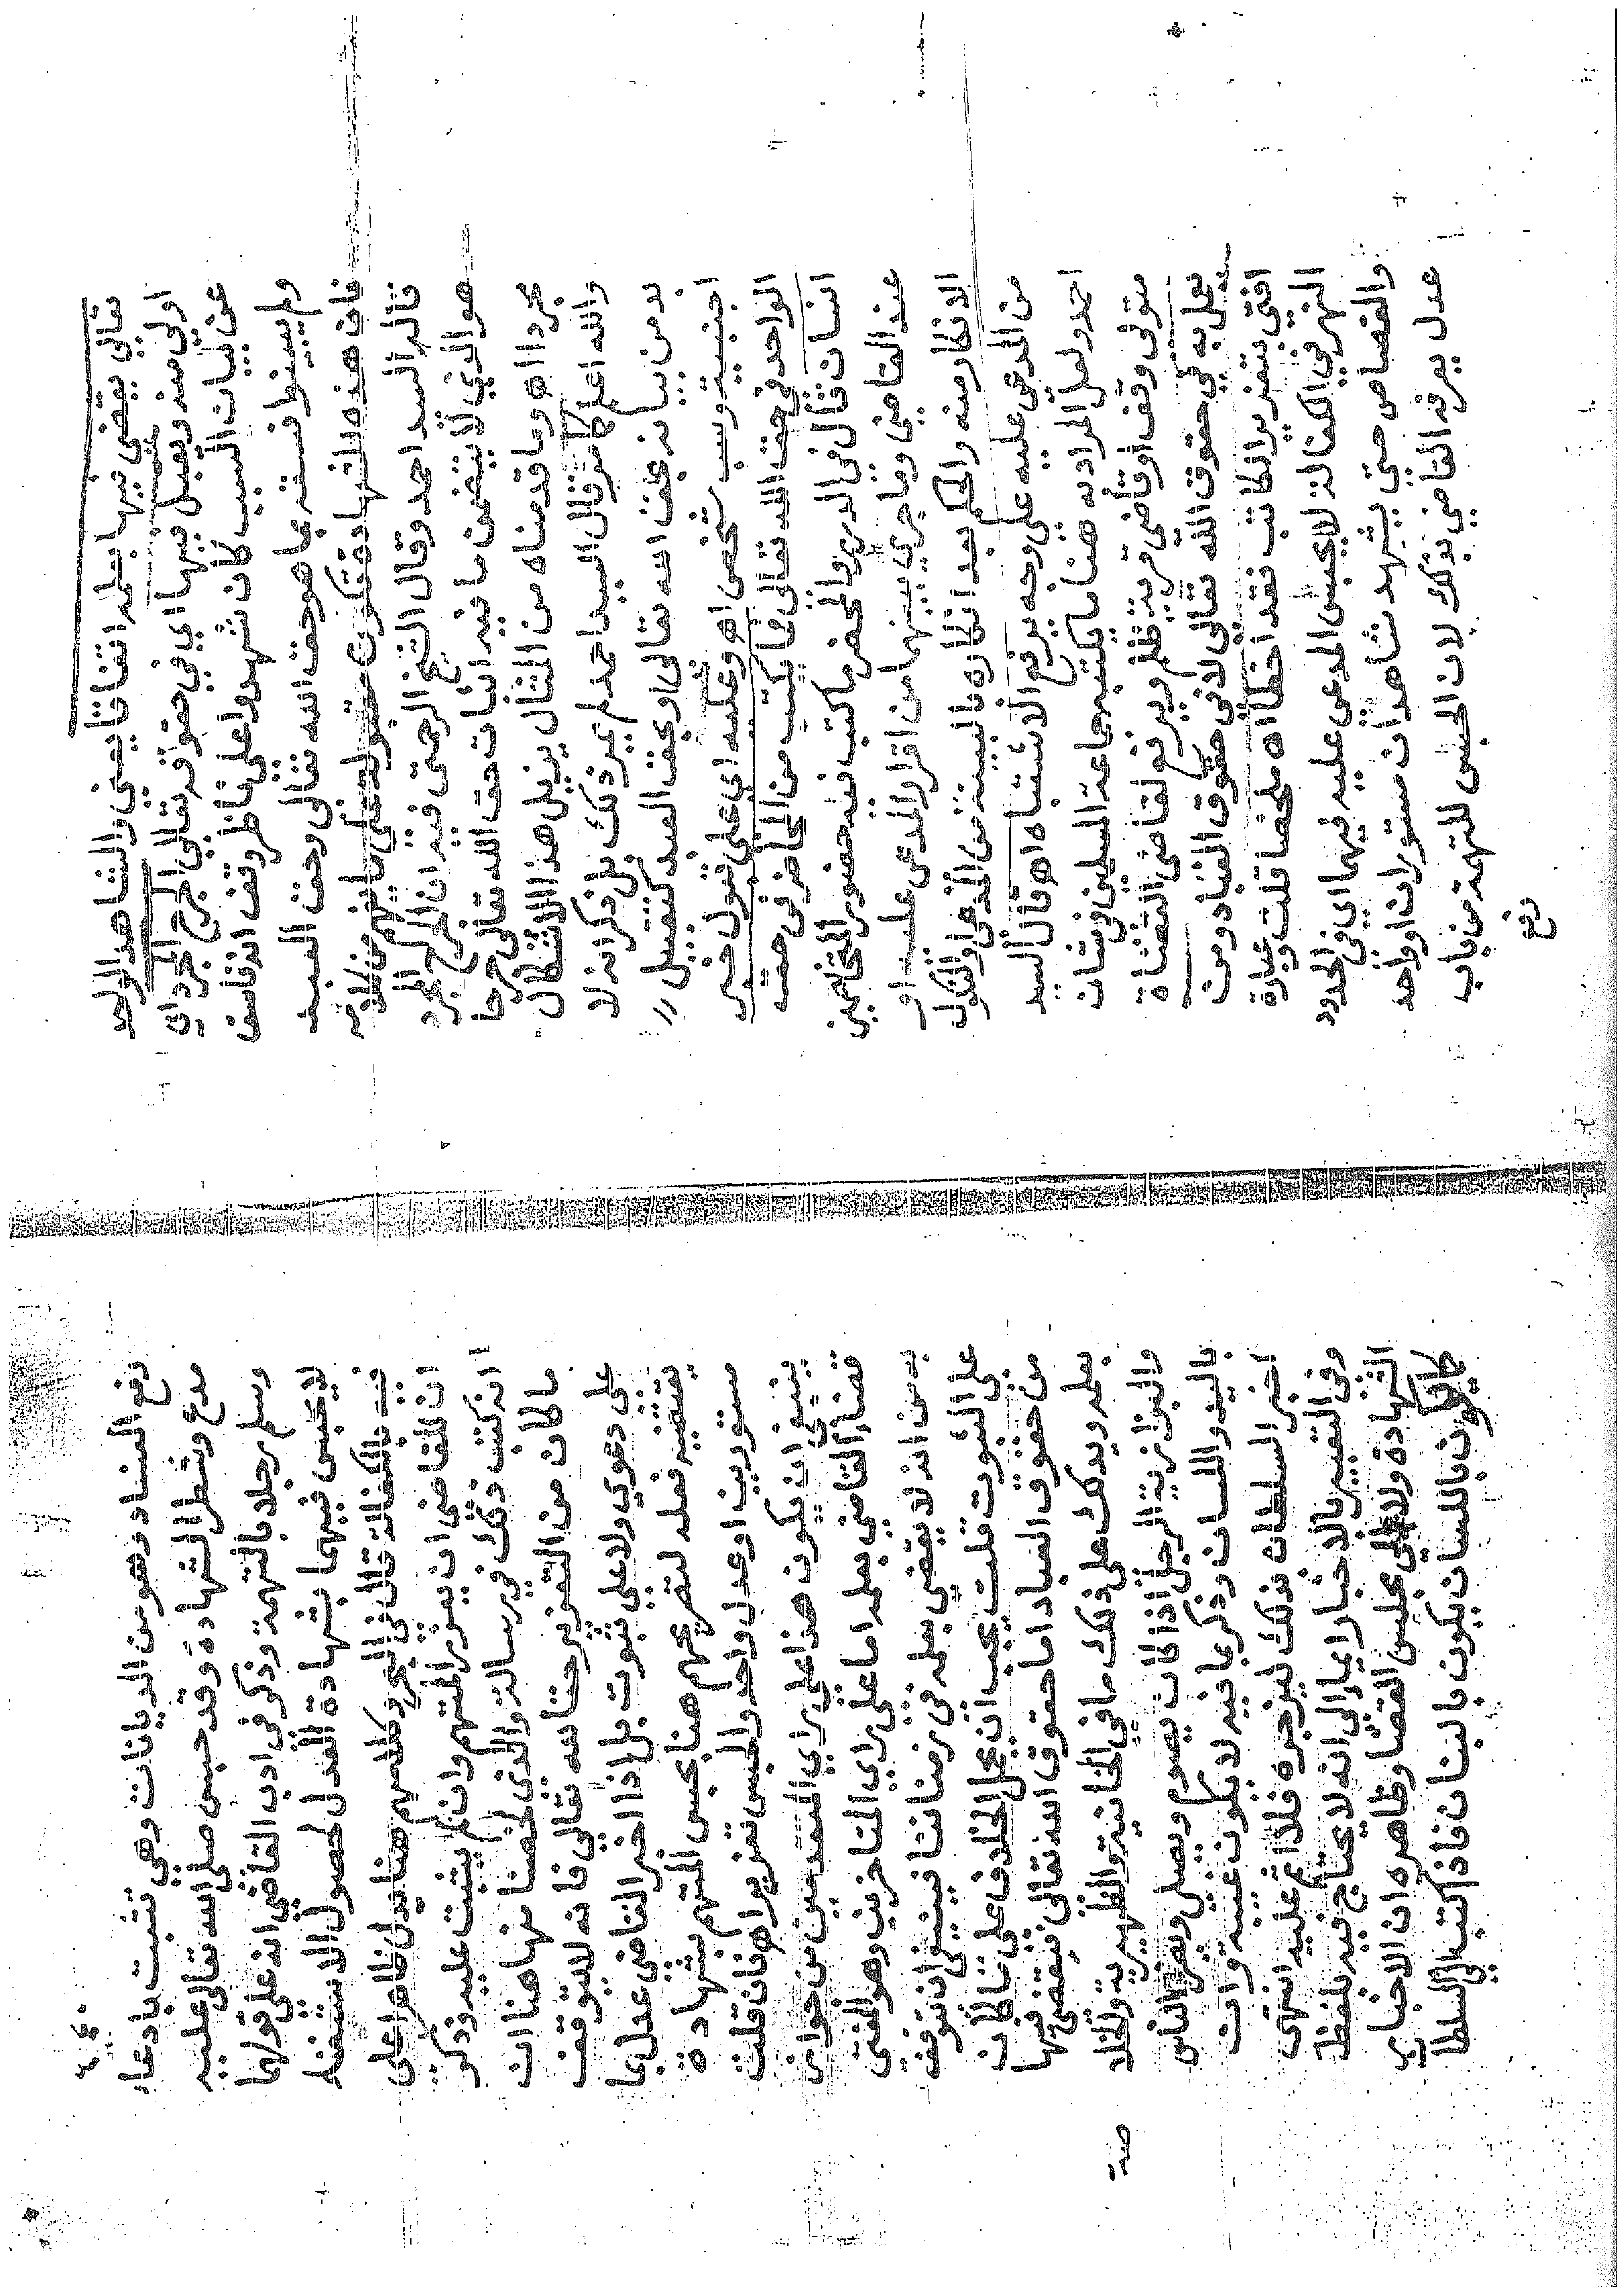 تعالى يقضي فيها بعلمه اتفاقا يعني والشاهد الواحد
اولى منه ويقبل فيها اي في حقوقه تعالى الجرح المجرد اي
عن بيان السبب كان شهدوا على ناظر وقف انه فاسق
ولم يبينوا فسقه بما هو حق الله تعالى وحق العبد
فان هذه الشهادة تكون مقبولة على ما يفهم من كلامه
قاله السيد احمد وقال الشيخ الرحمتي فيه ان الجرح المجرد
هو الذي لا يتضمن ما فيه اثبات حق الله تعالى جرحا
مجردا اه وما قدمناه من المثال يزيل هذا الاشكال
والله اعلم كما مر قال السيد احمد لم يميز ذلك بل ذكر انه لا
بد من بيانه بحق الله تعالى او بحق العبد كتقبيل //
اجنبية وسب شخص اه وعليه اي على قبول خبر
الواحد في حق الله تعالى ما يكتب من المحاضر في حق
انسان قال في الدرر والمحضر ما كتب فيه حضور المتخاصمين
عند القاضي وما جرى بينهما من اقرار المدعى عليه او
الانكار منه والحكم بعد انكاره بالبينة من المدعي او النكول
من المدعى عليه على وجه يرفع الاشتباه اه قال السيد
احمد ولعل المراد به هنا ما يكتبه جماعة المسلمين في شان
متولي وقف او قاضي قرية ظلم ويرفع لقاضي القضاة
يعمل به في حقوق الله تعالى لا في حقوق العباد ومن
افتى بتعزير الكاتب فقد اخطا اه ملخصا قلت وعبارة
النهر في الكفالة لا يحبس المدعى عليه فيهما اي في الحدود
والقصاص حتى يشهد شاهدان مستوران او واحد
عدل يعرفه القاضي بذلك لان الحبس للتهمة من باب
دفع
٤٠
دفع الفساد وهو من الديانات وهي تثبت بادعاء
مدع وشطر الشهادة وقد حبس صلى الله تعالى عليه
وسلم رجلا بالتهمة وذكر في ادب القاضي انه على قولهما
لا يحبس فيهما بشهادة العدل لحصول الاستيثاق
فيه بالكفالة قال في البحر وكلامهم هنا يدل ظاهرا على
ان للقاضي ان يعزر المتهم وان لم يثبت عليه وذكر
انه كتبت ذلك في رسالة والذي لخصنا منها هنا ان
ما كان من التعزير حقا لله تعالى فانه لا يتوقف
على دعوى ولا على ثبوت بل اذا اخبر القاضي عدل بما
يقتضيه فعله لتصريحهم هنا بحبس المتهم بشهادة
مستورين او عدل واحد والحبس تعزير اه فان قلت
ينبغي ان يكون هذا على راي المتقدمين من جواز
قضاء القاضي بعلمه اما على راي المتاخرين وهو المفتى
به من انه لا يقضي بعلمه في زماننا فينبغي ان تتوقف
على الثبوت قلت يجب ان يحمل الخلاف على ما كان
من حقوق العباد اما حقوق الله تعالى فيقضي فيها
بعلمه ويدلك على ذلك ما في الخانية والظهيرية والخلاصة
والبزازية الرجل اذا كان يصوم ويصلي ويضر الناس
باليد واللسان وذكر بما فيه لا يكون غيبة وان
اخبر السلطان بذلك ليزجره فلا اثم عليه انتهى
وفي التعبير بالاخبار ايماء الى انه لا يحتاج فيه بلفظ
الشهادة ولا مجلس القضا وظاهره ان الاخبار
كما يكون باللسان يكون بالبنان فاذا كتب الى السلطا